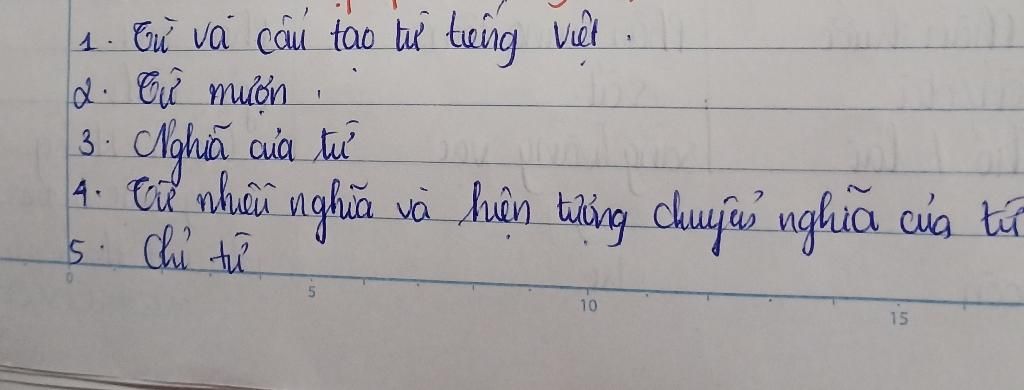 1. Từ và cấu tạo từ tiếng việt.
2. Từ mượn.
3. Nghĩa của từ
4. Từ nhiều nghĩa và hiện tượng chuyển nghĩa của từ
5. Chỉ từ
0 5 10 15